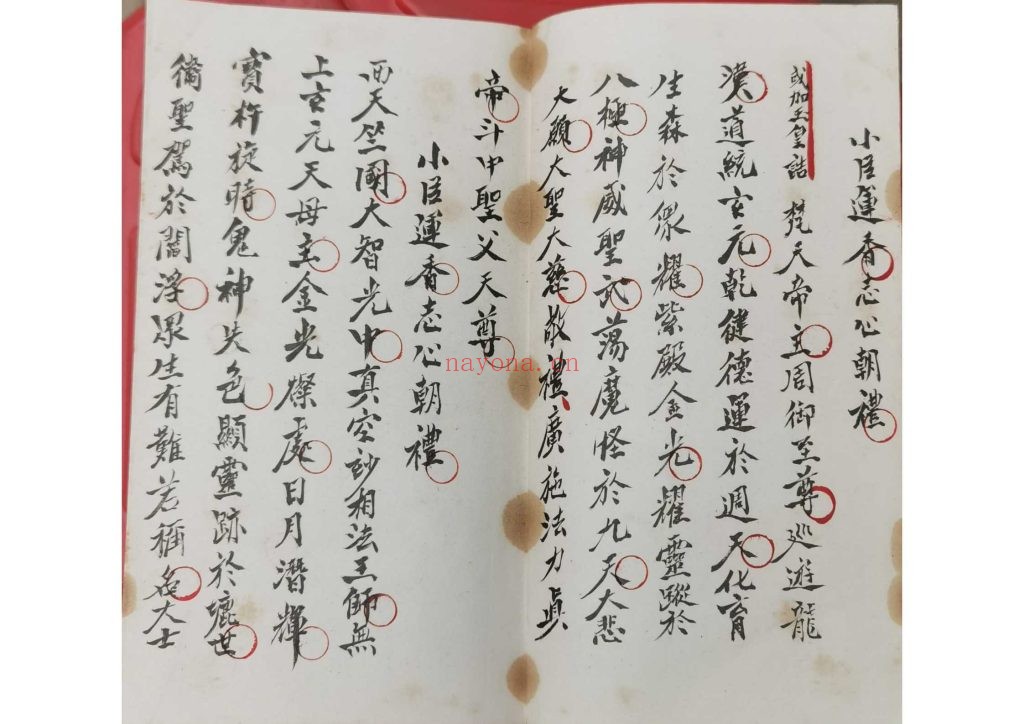 小臣運香志心朝禮
或加玉皇誥 梵天帝主周御至尊巡遊龍
漢道統玄元乾健德運於週天化育
生森於眾耀紫殿金光耀靈蹤於
八極神威聖武蕩魔怪於九天大悲
大願大聖大慈敬禮廣施法力眞
帝斗中聖父天尊
小臣運香志心朝禮
西天竺國大智光中真空妙相法王師無
上玄元天母主金光爍處日月潛輝
寶杵旋時鬼神失色顯靈跡於塵世
衛聖駕於閻浮眾生有難若稱名大士
nayona.cn